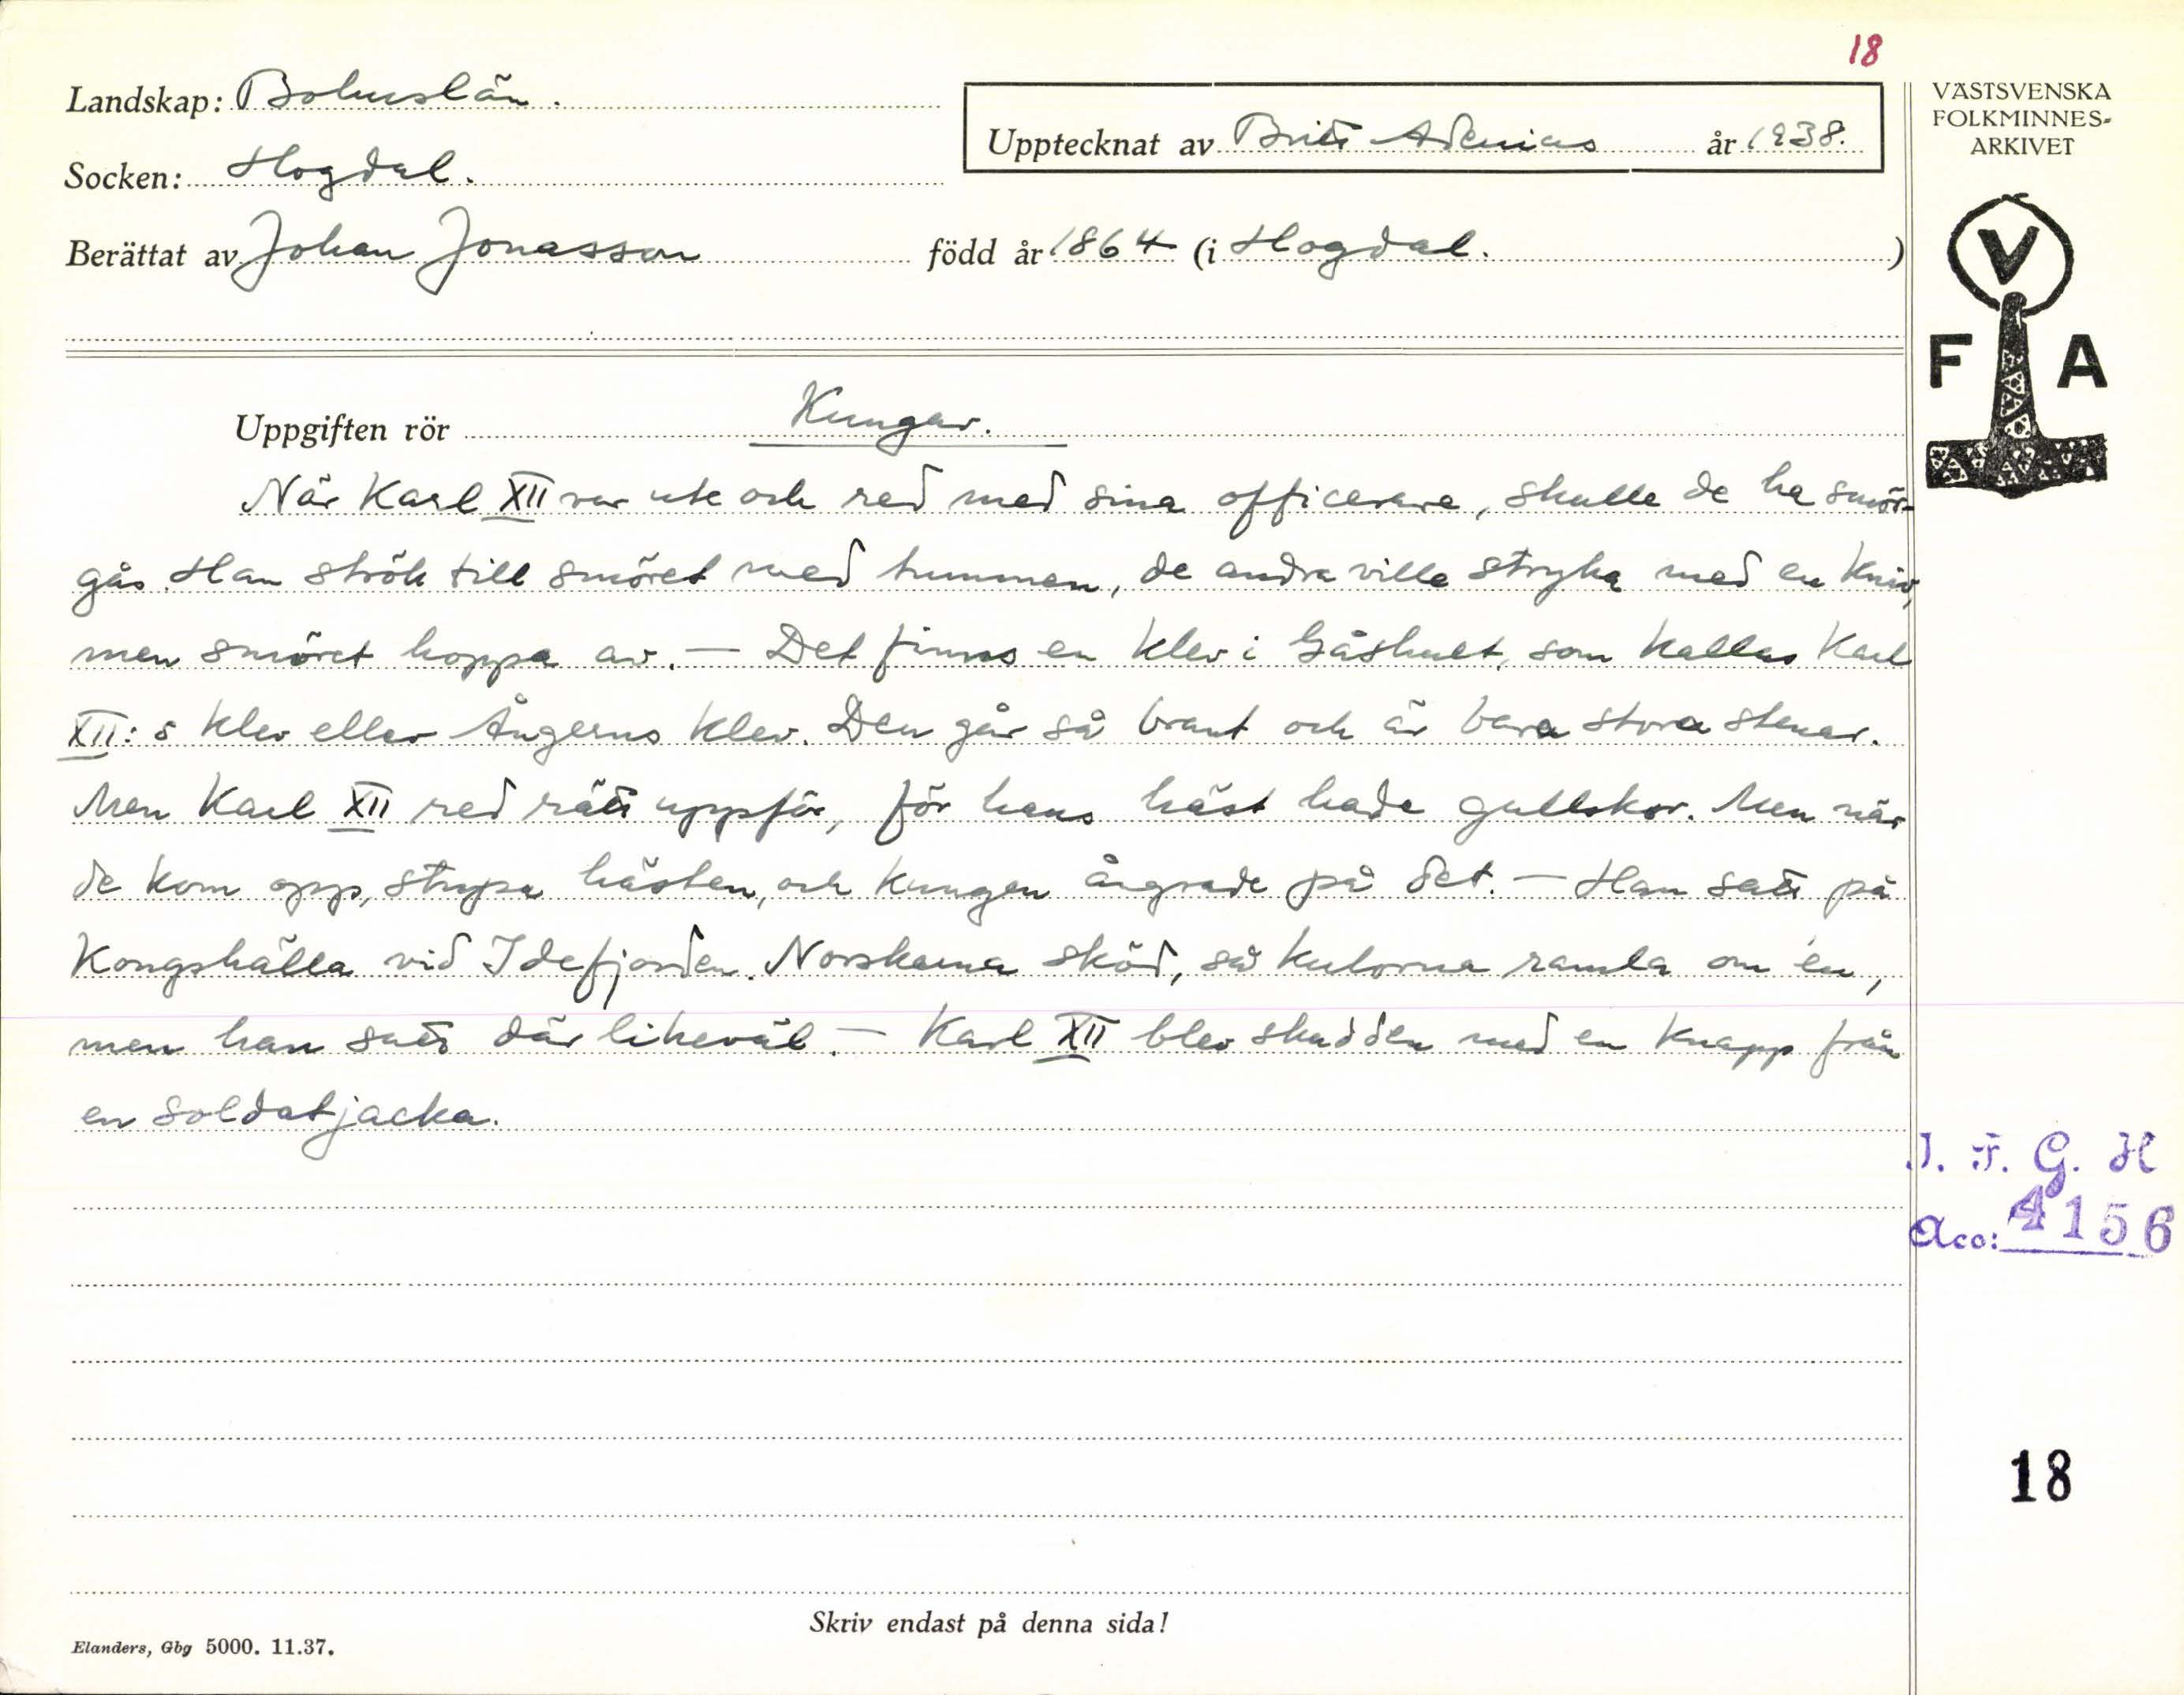 18
Landskap: Bohuslän.
Upptecknat av Britt Adenius år 1938.
VÄSTSVENSKA
FOLKMINNES-
ARKIVET
Socken: Hogdal.
Berättat av Johan Jonasson född år 1864 (i Hogdal.)
V
F A
Uppgiften rör Kungar.
När Karl XII var ute och red med sina officerare, skulle de ha smör-
gås. Han strök till smöret med tummen, de andra ville stryka med en kniv,
men smöret hoppa av. — Det finns en klev i Gåshult, som kallas Karl
XII:s klev eller Ångerns klev. Den går så brant och är bara stora stenar.
Men Karl XII red rätt uppför, för hans häst hade gullskor. Men när
de kom opp, stupa hästen, och kungen ångrade på det. — Han satt på
Kongshälla vid Idefjorden. Norskarna sköd, så kulorna ramla om én,
men han satt där likeväl. — Karl XII blev skudden med en knapp från
en soldatjacka.
I. F. G. H
Acc: 4156
18
Skriv endast på denna sida!
Elanders, Gbg 5000. 11.37.